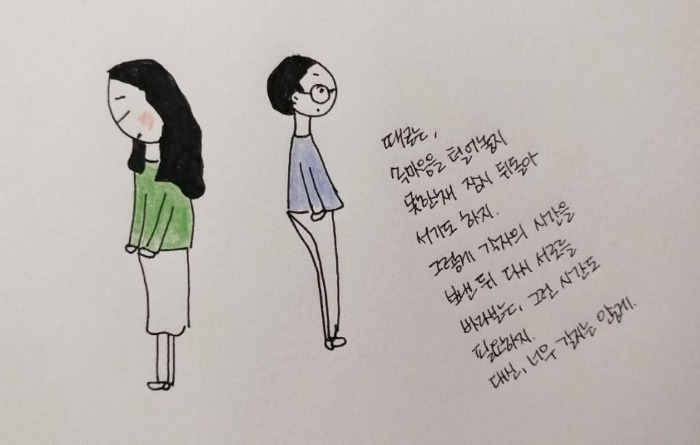 때로는,
속마음을 털어놓지
못한채 잠시 뒤돌아
서기도 하지.
그렇게 각자의 시간을
보낸 뒤 다시 서로를
바라보는, 그런 시간도
필요하지.
대신, 너무 길지는 않게.